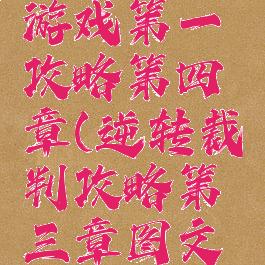 游戏第一
攻略第四
章(逆转裁
判攻略第
三章图文